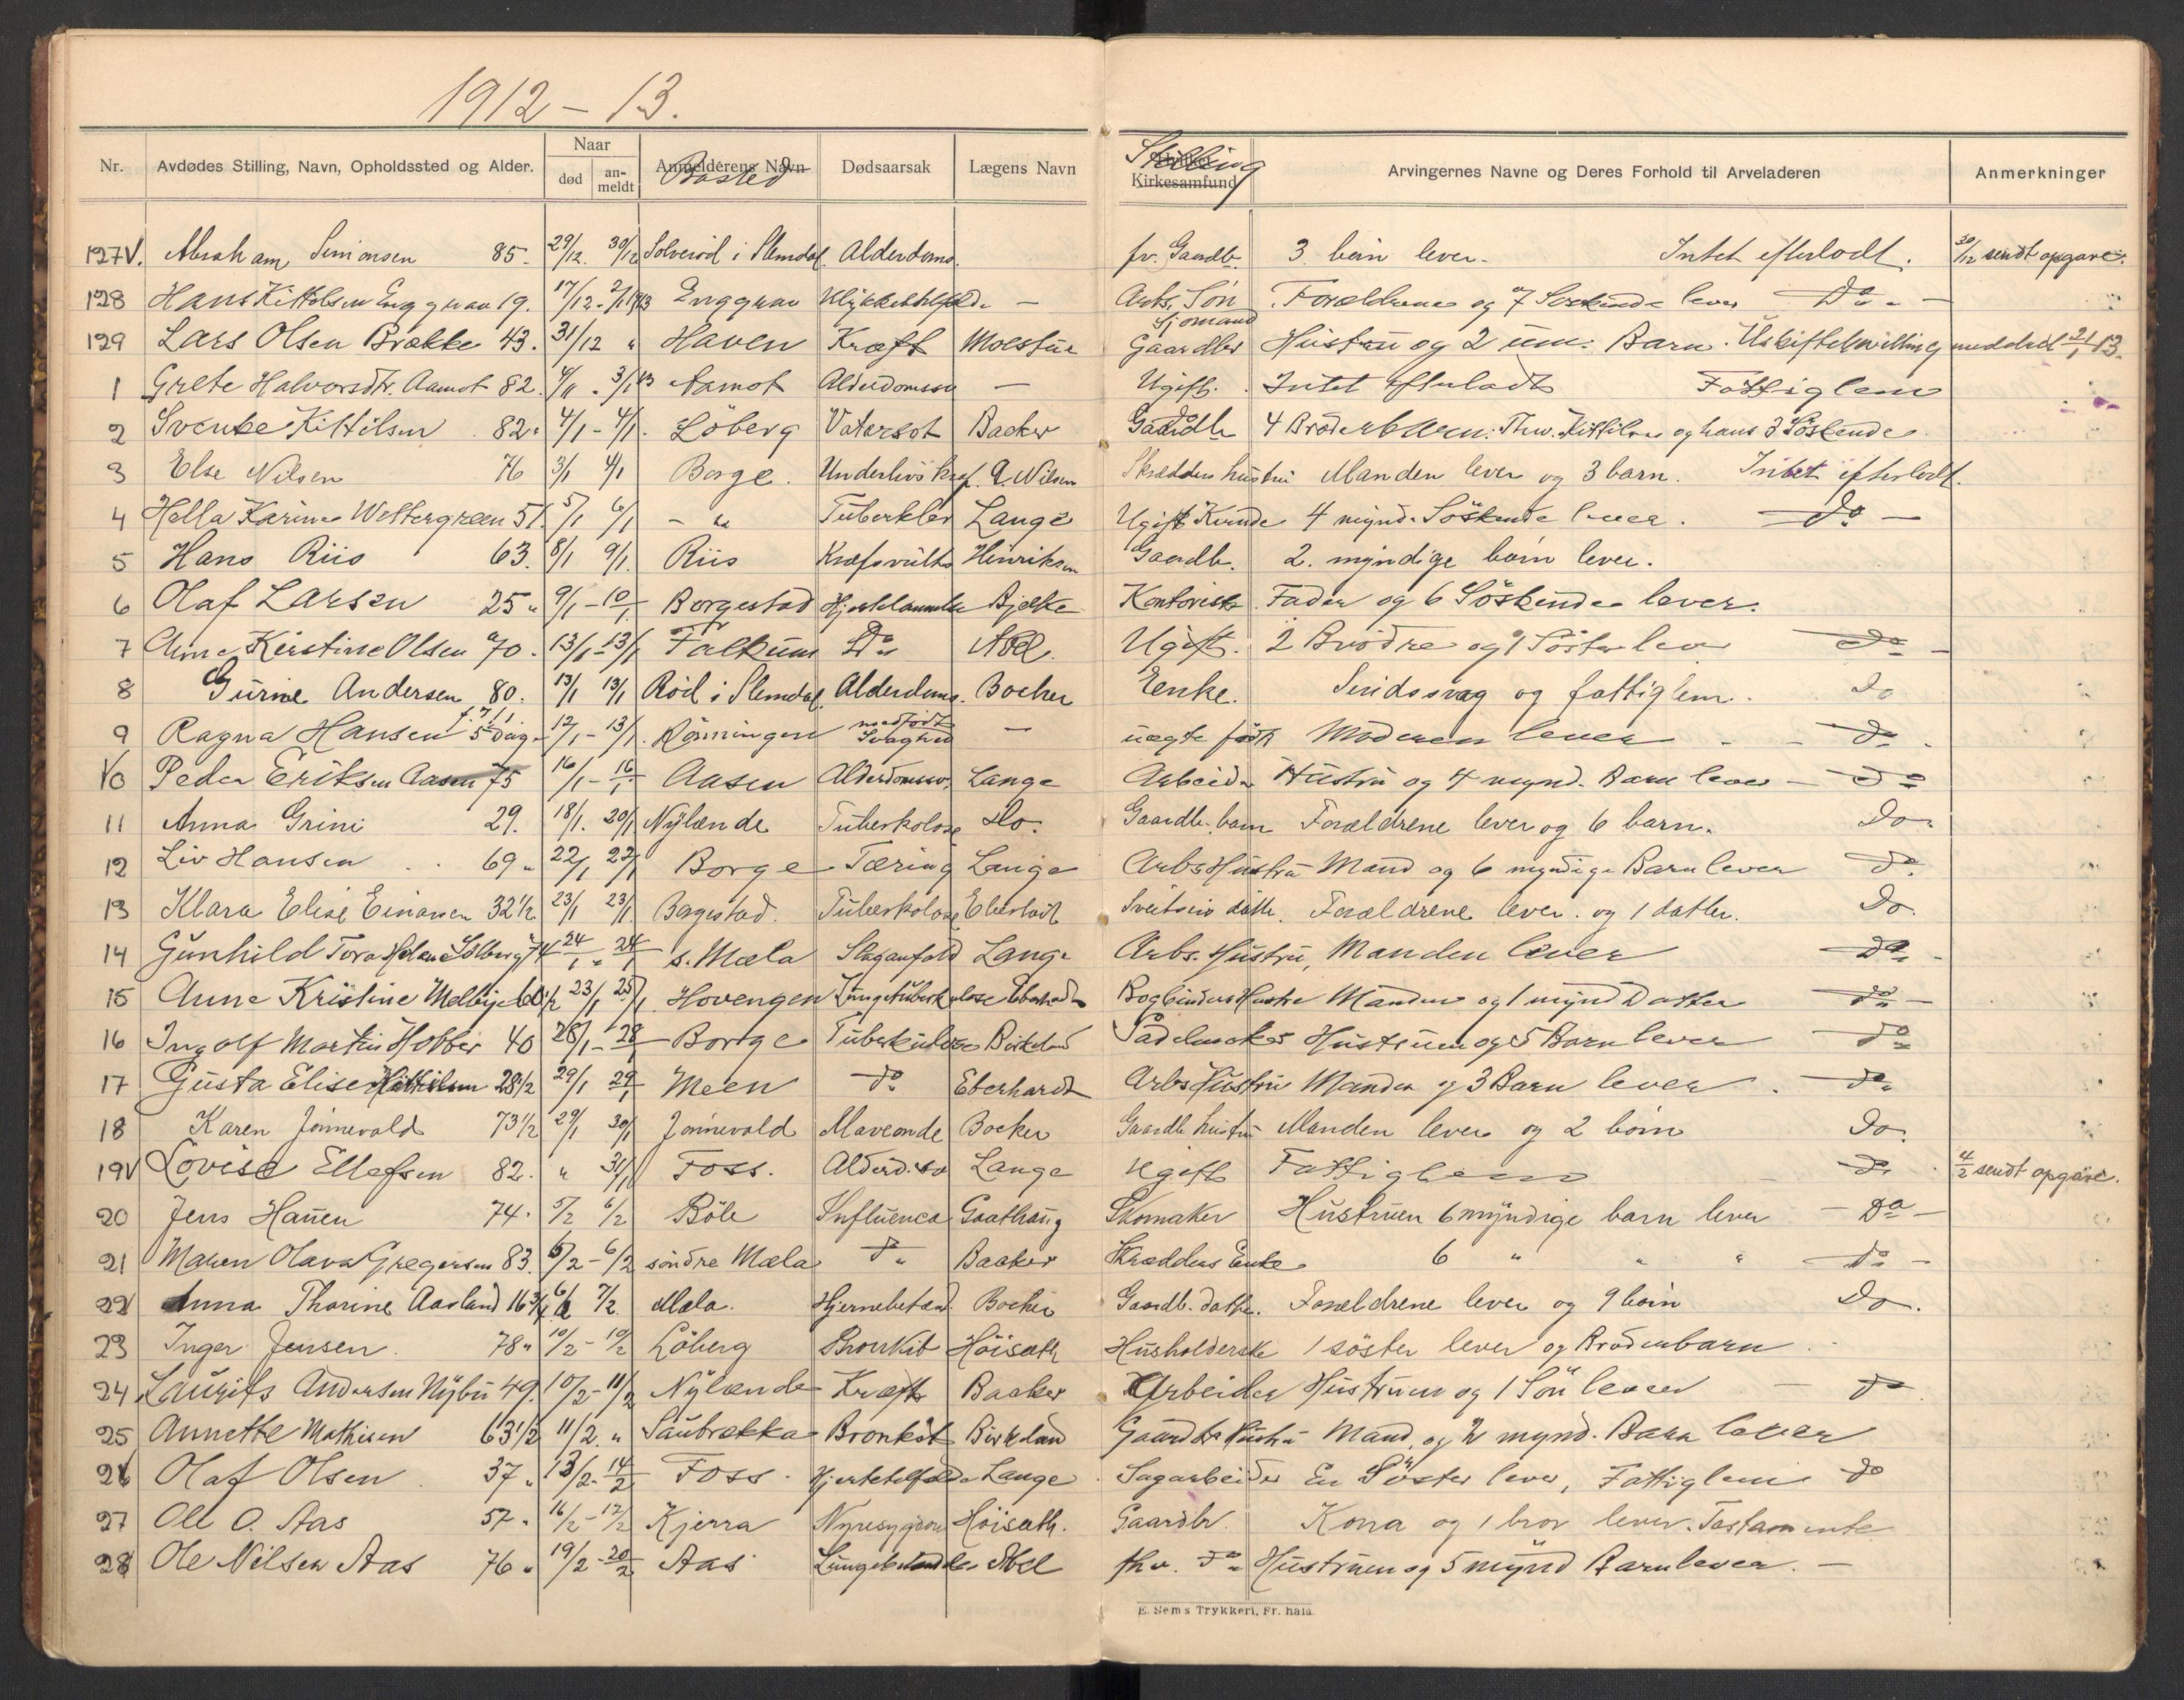 1912 - 13.
Nr. Avdødes Stilling, Navn, Opholdssted og Alder. Naar død an-meldt Anmelderens Navn Bosted Dødsaarsak Lægens Navn Stilling Kirkesamfund Arvingernes Navne og Deres Forhold til Arveladeren Anmerkninger
127 V. Abraham Simonsen 85. 29/12. 30/12 Solverød i Slemdal. Alderdoms. fv. Gaardb. 3 børn lever. Intet efterladt. 30/12 sendt opgave.
128 Hans Kittilsen Enggrav 19. 17/12 - 2/1 1913 Enggrav Ulykkestilfælde — Arb. Søn Sjømand Forældrene og 7 Søskende lever Do —
129 Lars Olsen Brække 43. 31/12 " Haven Kræft Moestue Gaardbr Hustru og 2 um. Barn. Uskiftebevilling meddelt 21/1 13.
1 Grete Halvorsdtr. Aamot 82. 1/1 - 3/1 13 Aamot Alderdomssv — Ugift. Intet efterladt Fattiglem
2 Svenke Kittilsen 82. 4/1 - 4/1. Løberg Vatersot Backer Gaardbr 4 Broderbarn: Thv. Kittilsen og hans 3 Søskende
3 Else Nilsen 76 3/1 4/1 Borge. Underlivs kræf. A. Nilsen Skrædders hustru Manden lever og 3 barn. Intet efterladt.
4 Hella Karine Wettergreen 51. 5/1 6/1 - " Tuberkler Lange Ugift Kvinde 4 mynd. Søskende lever. Do —
5 Hans Riis 63. 8/1 9/1. Riis Kræfsvulst Henriksen Gaardb. 2. myndige børn lever.
6 Olaf Larsen 25 " 9/1 - 10/1 Borgestad Hjertelammelse Bjelke Kontorist Fader og 6 Søskende lever.
7 Anne Kirstine Olsen 70. 13/1 - 13/1 Falkum Do Abel. Ugift. 2 Brødre og 1 Søster lever Do —
8 Gurine Andersen 80. 13/1 13/1 Rød i Slemdal. Alderdoms. Bocker Enke. Sindssvag og fattiglem. Do
9 Ragna Hansen f. 7/1. 5 Dag. 12/1 - 13/1. Rønningen medfødt Svaghed — uægte født Moderen lever - - Do.
10 Peder Eriksen Aasen 75 16/1 - 16/1 Aasen Alderdomssv. Lange Arbeider Hustru og 4 mynd. Barn lever — Do
11 Anna Grini 29. 18/1. 20/1 Nylænde Tuberkolose Do. Gaardb. barn Forældrene lever og 6 barn. Do.
12 Liv Hansen 69 " 22/1 22/1 Borge Tæring Lange Arbs Hustru Mand og 6 myndige Barn lever Do.
13 Klara Elise Einarsen 32 1/2 23/1 23/1 Borgestad. Tuberkolose Eberhart datter. Forældrene lever. og 1 datter. Do.
14 Gunhild Tora Helene Solberg 74 24/1 " 24/1 s. Mæla Slaganfald Lange Arbs. Hustru, Manden lever Do —
15 Anne Kristine Melbye 60 1/2 23/1 25/1 Hovengen Lungetuberkulose Eberhardt Bogbinders Hustru Manden og 1 mynd Datter Do —
16 Ingolf Martin Hobber 40 28/1 - 28/1 Borge Tuberkulose Birkeland Sadelmaker Hustruen og 5 Barn lever Do
17 Gusta Elise Kittilsen 28 1/2 29/1 29/1 Meen Do Eberhardt Arbs Hustru Manden og 3 Barn lever. Do
18 Karen Jønnevald 73 1/2 29/1 30/1 Jønnevald Maveonde Bocker Gaardb. hustru Manden lever og 2 børn Do.
19 V Lovise Ellefsen 82. " 31/1 Foss. Alderd. sv Lange Ugift Fattiglem Do. 4/2 sendt opgave.
20 Jens Hauen 74. 5/2 6/2 Bøle Influenca Gaathaug Skomaker Hustruen 6 myndige barn lever — Do —
21 Maren Olava Gregersen 83. 5/2 - 6/2 søndre Mæla Do Backer Skrædders Enke 6 " " " Do —
22 Anna Thorine Aasland 16 3/4 6/2 7/2. Mæla. Hjernebetænd. Bocker Gaardb. datter. Forældrene lever og 9 børn Do.
23 Inger Jensen. 78 " 10/2 - 10/2 Løberg Bronkit Høisæth Husholderske 1 søster lever og Broderbarn
24 Laurits Andersen Nybu 49. 10/2 - 11/2 Nylænde Kræft Backer Arbeider Hustruen og 1 Søn lever — Do
25 Annette Mathisen 63 1/2 11/2. " Saubrække Bronkit Birkeland Gaardbr Hustru Mand, og 2 mynd. Barn lever
26 Olaf Olsen 37 " 13/2 - 14/2 Foss. Hjertetilfælde Lange Sagarbeider En Søster lever, Fattiglem Do
27 Ole O. Aas 57 " 16/2 - 17/2 Kjerra Nyresygdom Høisæth. Gaardbr. Kona og 1 bror lever. Testamente
28 Ole Nilsen Aas 76 " 19/2 - 20/2 Aas Lungebetændelse Abel fhv. Do Hustruen og 5 mynd Barn lever. —
E. Sems Trykkeri, Fr. hald.